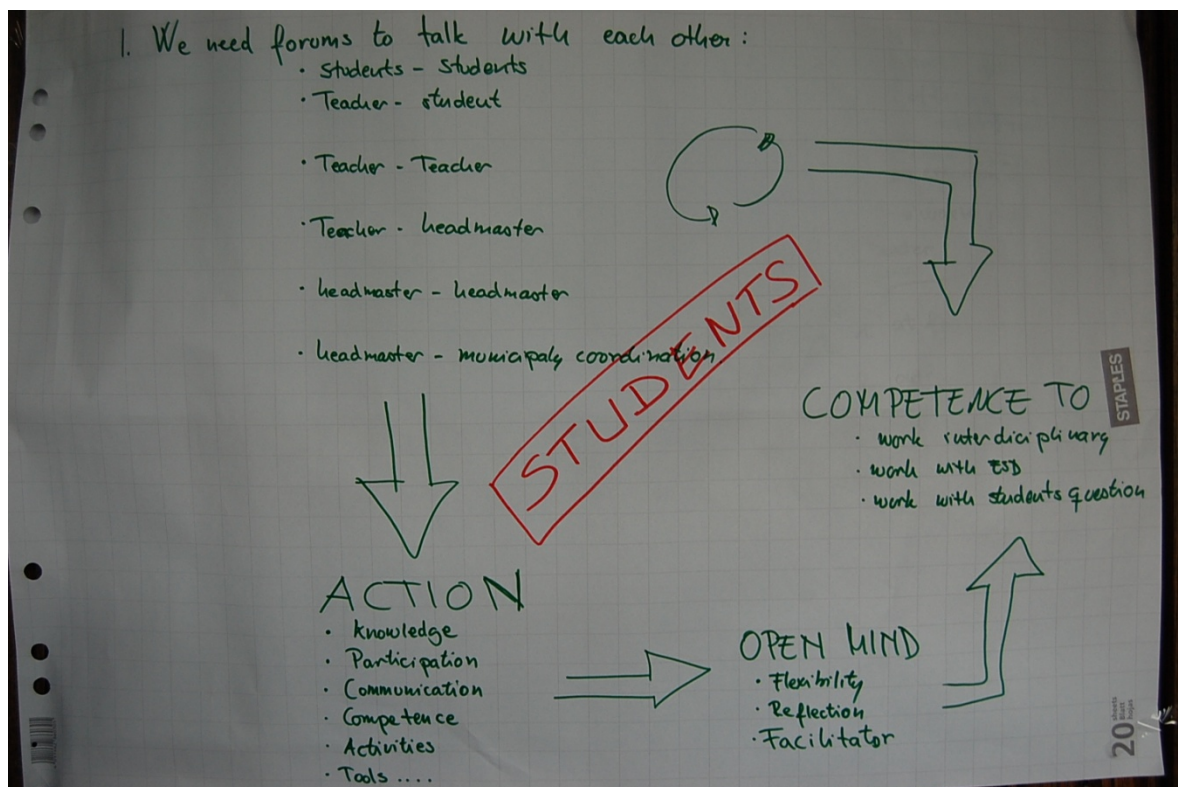 1. We need forums to talk with each other:
· Students - Students
· Teacher - student
· Teacher - Teacher
· Teacher - headmaster
· headmaster - headmaster
· headmaster - municipaly coordination
STUDENTS
COMPETENCE TO
· work interdiciplinary
· work with ESD
· work with students question
STAPLES
ACTION
· Knowledge
· Participation
· Communication
· Competence
· Activities
· Tools ....
OPEN MIND
· Flexibility
· Reflection
· Facilitator
20 sheets
blatt
hojas